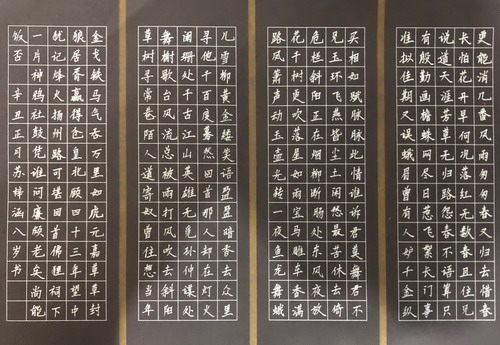 更能消几番风雨匆匆春又归去惜春
长怕花开早何况落红无数春且住见
说道天涯芳草无归路怨春不语算只
有殷勤画檐蛛网尽日惹飞絮长门事
准拟佳期又误蛾眉曾有人妒千金纵
买相如赋脉脉此情谁诉君莫舞君不
见玉环飞燕皆尘土闲愁最苦休去倚
危栏斜阳正在烟柳断肠处东风夜放
花千树更吹落星如雨宝马雕车香满
路凤箫声动玉壶光转一夜鱼龙舞蛾
儿雪柳黄金缕笑语盈盈暗香去众里
寻他千百度蓦然回首那人却在灯火
阑珊处千古江山英雄无觅孙仲谋处
舞榭歌台风流总被雨打风吹去斜阳
草树寻常巷陌人道寄奴曾住想当年
金戈铁马气吞万里如虎元嘉草草封
狼居胥赢得仓皇北顾四十三年望中
犹记烽火扬州路可堪回首佛狸祠下
一片神鸦社鼓凭谁问廉颇老矣尚能
饭否 辛丑正月苏梓涵八岁书